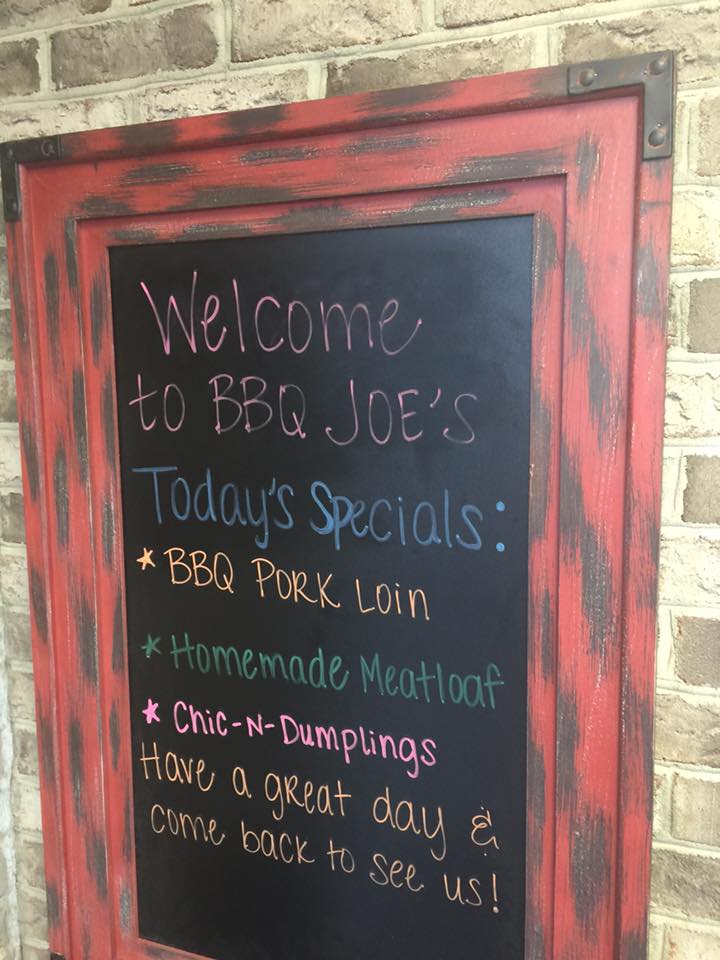 Welcome
to BBQ JOE'S
Today's Specials:
* BBQ PORK Loin
* Homemade Meatloaf
* Chic-N-Dumplings
Have a great day &
come back to see us!